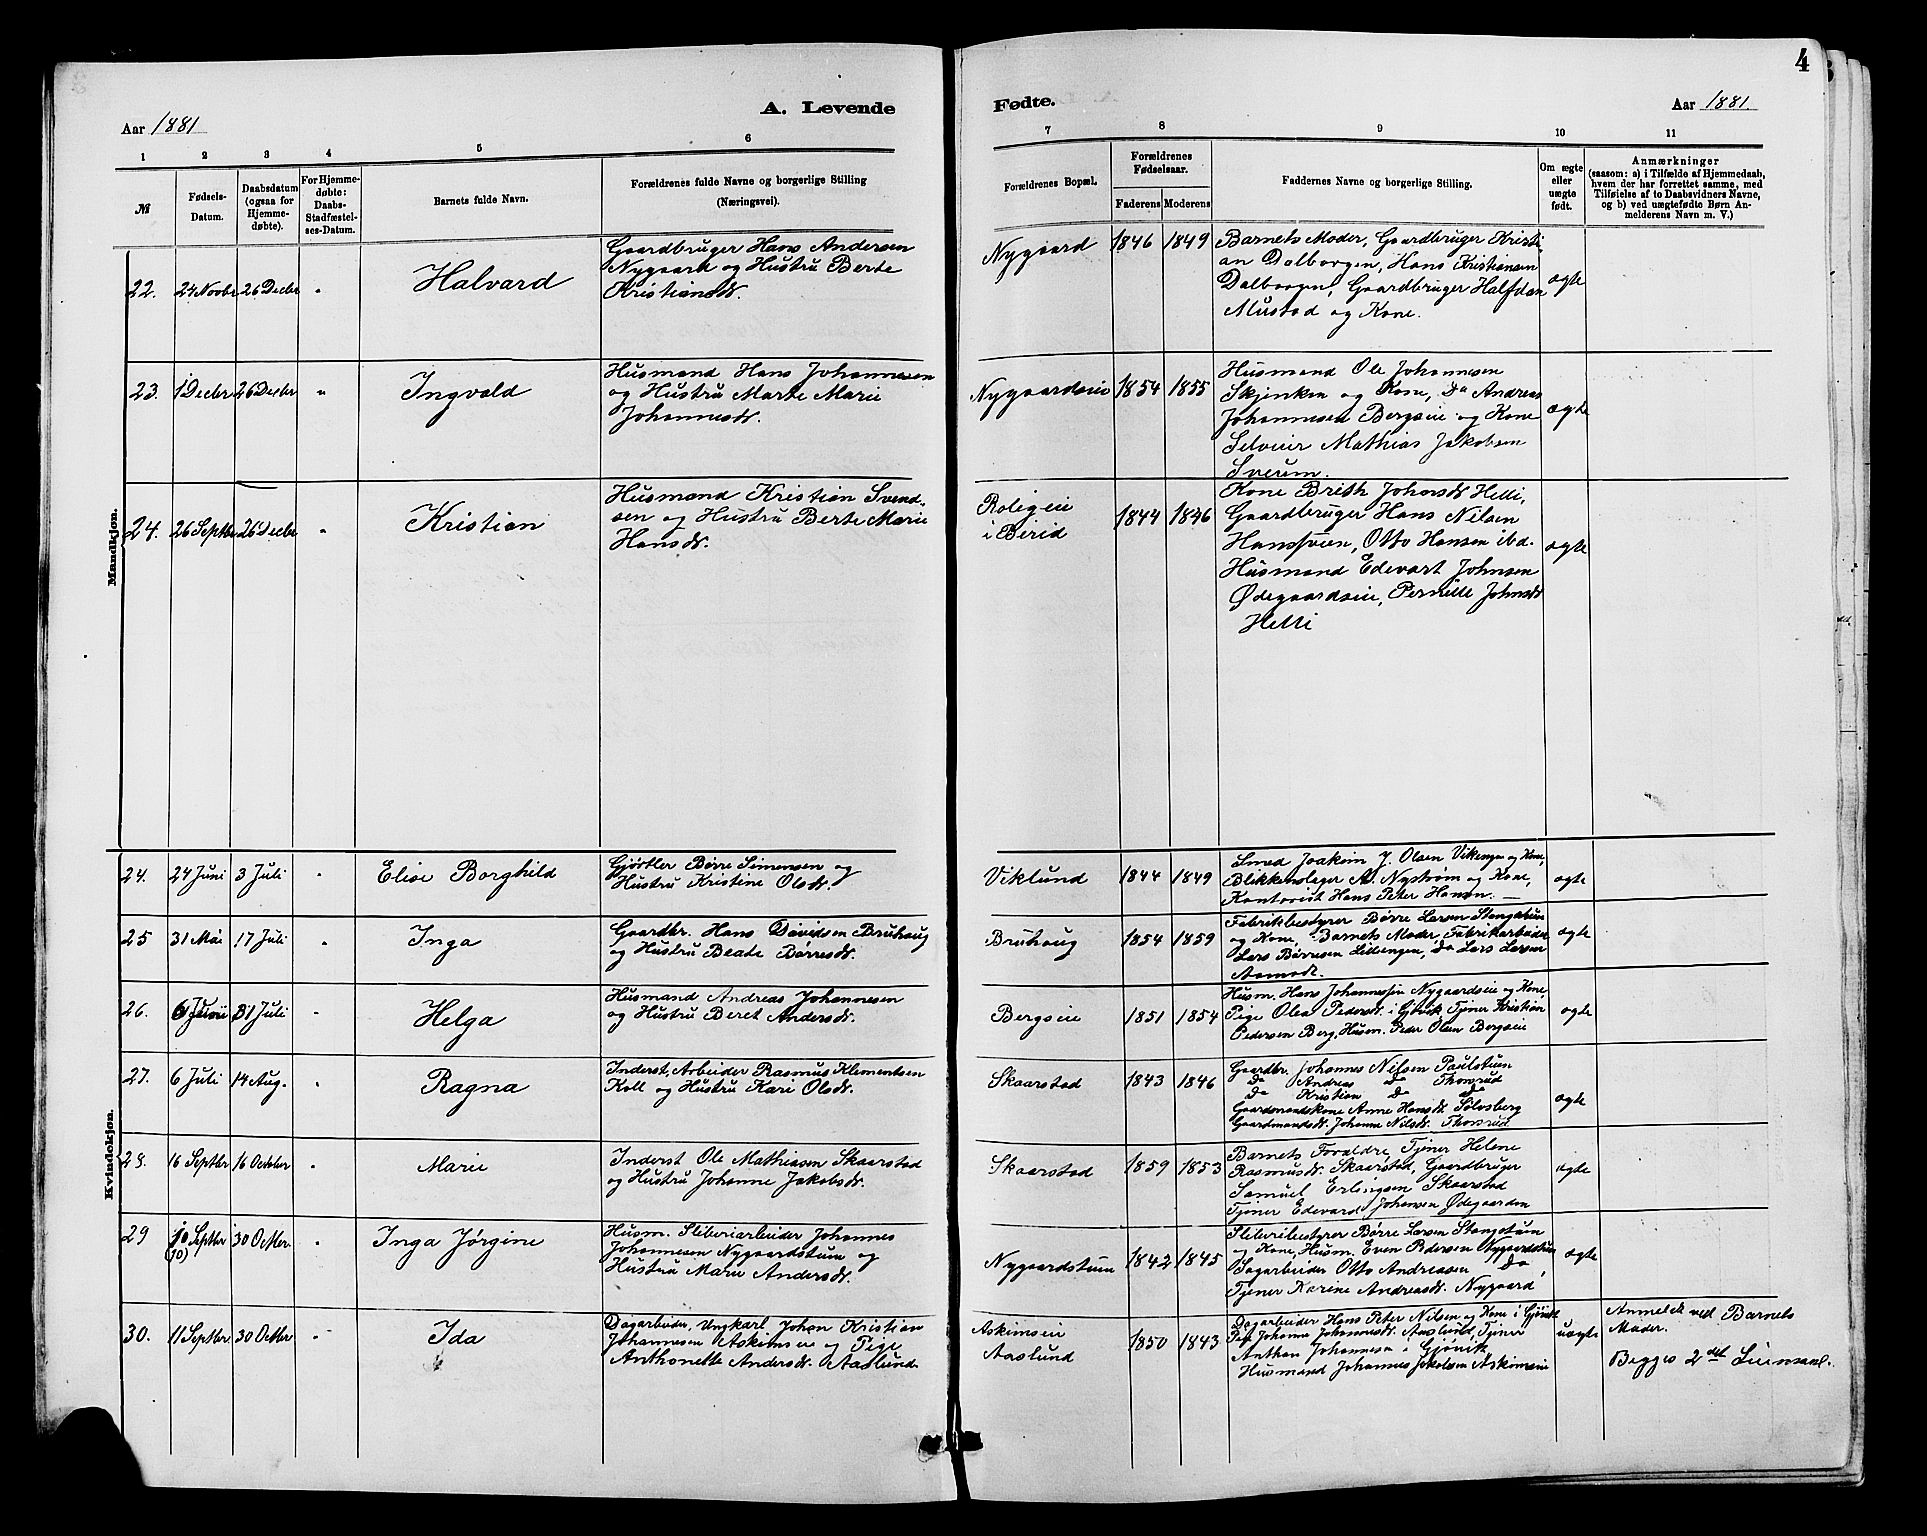 4
A. Levende
Fødte.
Aar 1881
Aar 1881.
1 2 3 4 5 6
7 8 9 10 11
№
Fødsels-
Datum.
Daabsdatum
(ogsaa for
Hjemme-
døbte).
For Hjemme-
døbte:
Daabs-
Stadfæstel-
ses-Datum.
Barnets fulde Navn.
Forældrenes fulde Navne og borgerlige Stilling
(Næringsvei).
Forældrenes Bopæl.
Forældrenes
Fødselsaar.
Faderens Moderens
Faddernes Navne og borgerlige Stilling.
Om ægte
eller
uægte
født.
Anmærkninger
(saasom: a) i Tilfælde af Hjemmedaab,
hvem der har forrettet samme, med
Tilføielse af to Daabsvidners Navne,
og b) ved uægtefødte Børn An-
melderens Navn m. V.)
Mandkjøn.
22. 24 Novbr 26 Decbr "
Halvard
Gaardbruger Hans Andersen
Nygaard og Hustru Berte
Kristiansdr.
Nygaard
1846 1849
Barnets Moder, Gaardbruger Kristi-
an Dalborgen, Hans Kristiansen
Dalborgen, Gaardbruger Halfdan
Mustad og Kone.
ægte
23. 1 Decbr 26 Decbr "
Ingvald
Husmand Hans Johannesen
og Hustru Marte Marie
Johannesdr.
Nygaardseie
1854 1855
Husmand Ole Johannesen
Skjenken og Kone, Do Andreas
Johannesen Bergseie og Kone
Selveier Mathias Jakobsen
Sverum.
ægte
24. 26 Septbr 26 Decbr "
Kristian
Husmand Kristian Svend-
sen og Hustru Berte Marie
Hansdr.
Roligeie
i Berid
1844 1846
Kone Brith Johnsdr Helli,
Gaardbruger Hans Nilsen
Hanssveen, Otto Hansen ibd.
Husmand Edevart Johnsen
Ødegaardseie, Pernille Johnsdr
Helli
ægte
Kvindekjøn.
24. 24 Juni 3 Juli "
Elise Borghild
Gjørtler Børre Simensen og
Hustru Kristine Olsdr.
Viklund
1844 1849
Smed Joakim J. Olsen Vikengen og Kone,
Blikkenslager A. Nystrøm og Kone,
Kontorist Hans Peter Hansen. —
ægte
25 31 Mai 17 Juli "
Inga
Gaardbr. Hans Davidsen Bruhaug
og Hustru Beate Børresdr.
Bruhaug
1854 1859
Fabrikbestyrer Børre Larsen Stangstuen
og Kone, Barnets Moder, Fabrikarbeider
Lars Børresen Lillengen, Do Lars Larsen
Aamodt.
ægte
26. 6 Juni 31 Juli "
Helga
Husmand Andreas Johannesen
og Hustru Beret Andersdr.
Bergseie
1851 1854
Husm. Hans Johannessen Nygaardseie og Kone,
Pige Olea Pedersdr. i Gjøvik, Tjener Kristian
Pedersen Berg, Husm. Peder Olsen Bergseie
ægte
27. 6 Juli 14 Aug. "
Ragna
Inderst, Arbeider Rasmus Klementsen
Koll og Hustru Kari Olsdr.
Skaarstad
1843 1846
Gaardbr. Johannes Nilsen Paulstuen
Do Andreas Do Thorsrud
Do Kristian Do Do
Gaardmandskone Anne Hansdr. Sølvsberg
Gaardmandsdr. Johanne Nilsdr. Thorsrud
ægte
28. 16 Septbr 16 October "
Marie
Inderst Ole Mathiasen Skaarstad
og Hustru Johanne Jakobsdr.
Skaarstad
1859 1853
Barnets Forældre, Tjener Helene
Rasmusdr. Skaarstad, Gaardbruger
Samuel Erlingsen Skaarstad
Tjener Edevard Johansen Ødegaarden
ægte
29 10 Septbr 30 Octbr. "
(10)
Inga Jørgine
Husm. Sliberiarbeider Johannes
Johannesen Nygaardstuen og
Hustru Marie Andersdr.
Nygaardstuen
1842 1845
Sliberibestyrer Børre Larsen Stangstuen
og Kone, Husm. Even Pedersen Nygaardstuen
Sagarbeider Otto Andreasen Do,
Tjener Karine Andreasdr. Nygaard
ægte
30. 11 Septbr 30 Octbr "
Ida
Dagarbeider, Ungkarl Johan Kristian
Johannesen Askimseie og Pige
Anthonette Andersdr. Aaslund
Askimseie
Aaslund
1850 1843
Dagarbeider Hans Peter Nilsen og Kone i Gjøvik
Pige Johanne Johannesdr. Aaslund, Tjener
Anthon Johannesen i Gjøvik
Husmand Johannes Jakobsen Askimseie
uægte
Anmeldt ved Barnets
Moder.
Begges 2det Leiermaal.